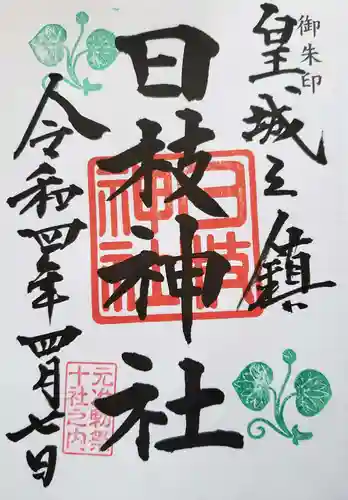 御朱印
皇城之鎮
日枝神社
日枝神社
元准勅祭
十社之内
令和四年四月七日